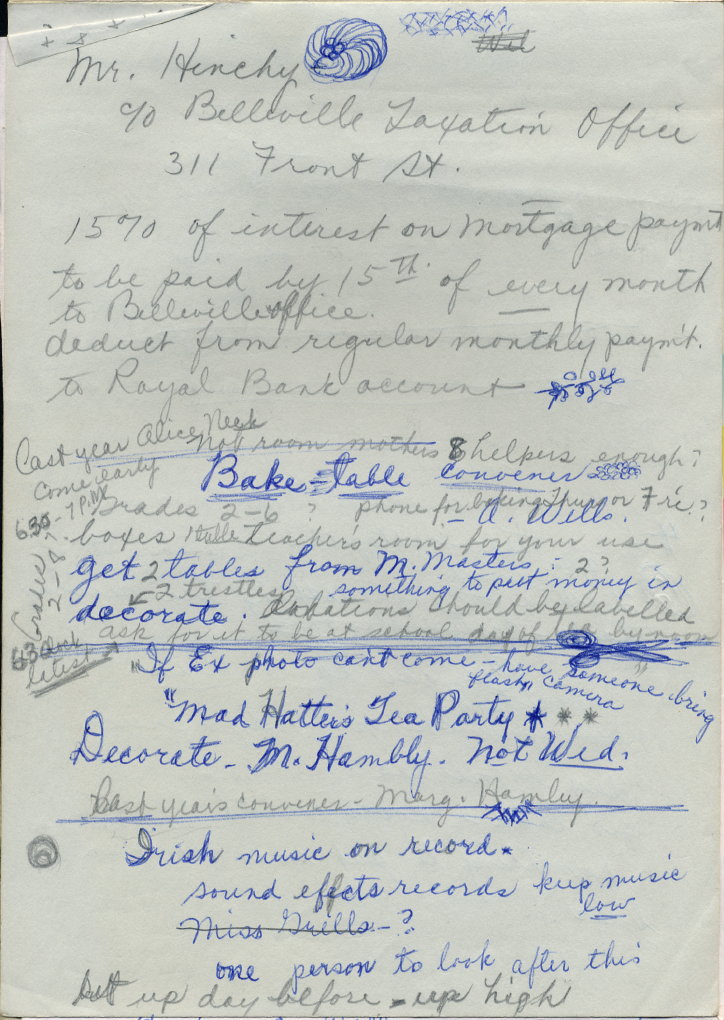 Wed
Mr. Hinchy
c/o Belleville Taxation Office
311 Front St.
15% of interest on mortgage paym't
to be paid by 15th of every month
to Belleville office.
deduct from regular monthly paym't.
to Royal Bank account
Last year Alice
not room mothers 8 helpers enough?
come early
Bake-table convener
6.30 - 7 P.M.
Grades 2-6 ? phone for baking Thurs or Fri.?
- A. Wills.
boxes teachers room for your use
get 2 tables from M. Masters - 2?
2 trestles something to put money in
Grades 2-8
decorate. Donations should be labelled
ask for it to be at school day of by noon
6.30
latest
"If Ex photo can't come - have someone bring
flash camera"
"Mad Hatter's Tea Party
Decorate - M. Hambly. Not Wed.
Last year's convener - Marg. Hamley.
Irish music on record.
sound effects records keep music
low
Miss Grills - ?
one person to look after this
set up day before - up high